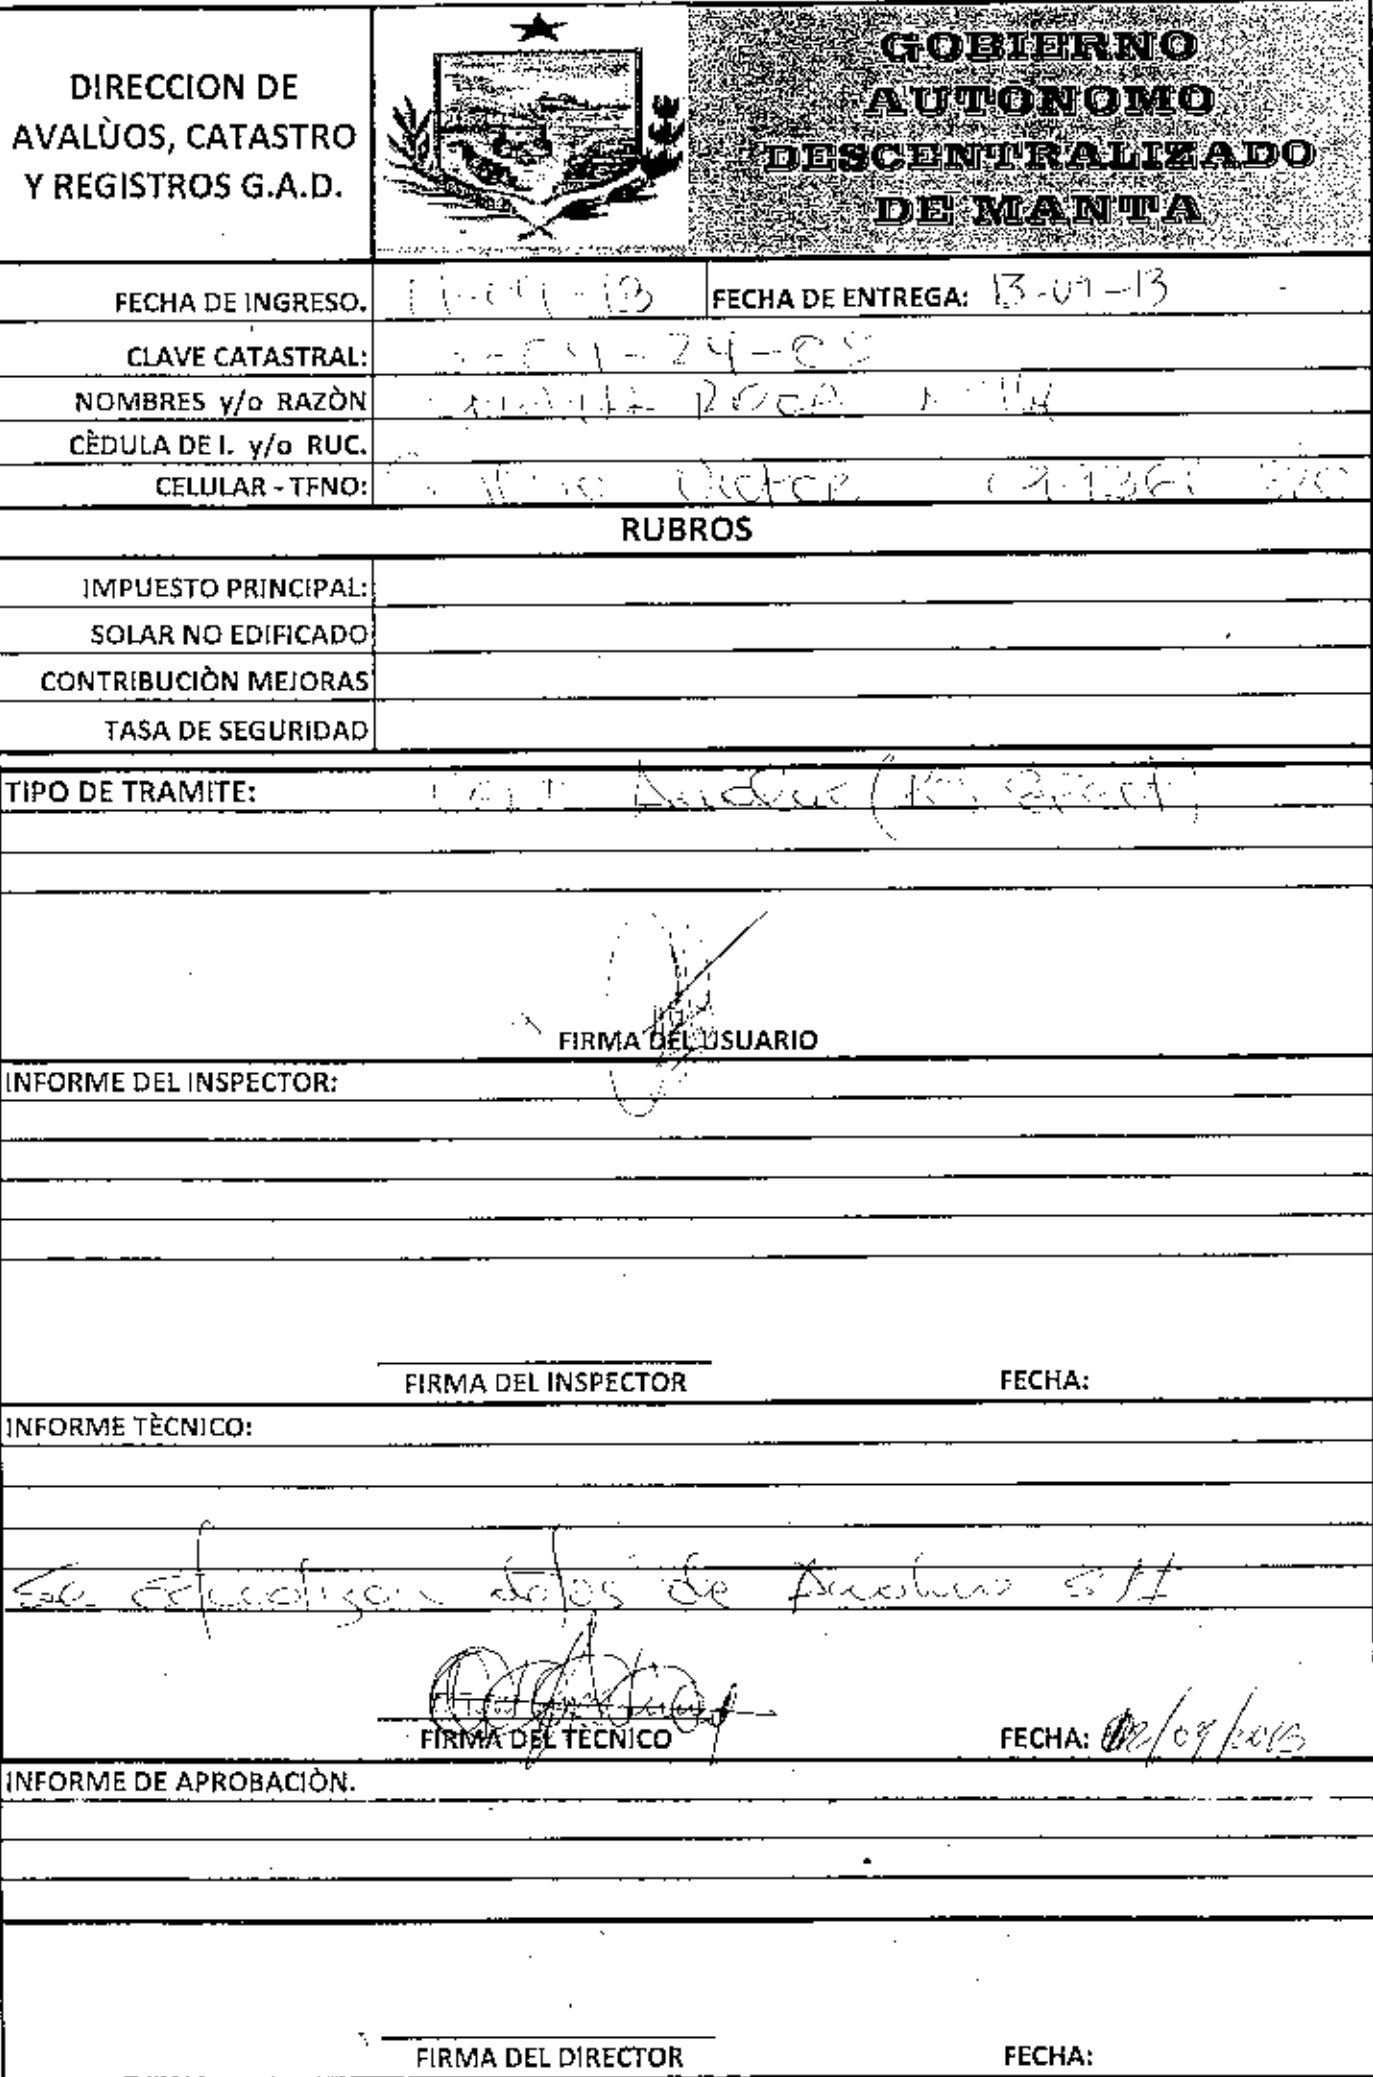 DIRECCION DE
AVALÙOS, CATASTRO
Y REGISTROS G.A.D.
GOBIERNO
AUTÒNOMO
DESCENTRALIZADO
DE MANTA
FECHA DE INGRESO. 11-09-13 FECHA DE ENTREGA: 13-09-13
CLAVE CATASTRAL: -24-
NOMBRES y/o RAZÒN ROCA
CÈDULA DE I. y/o RUC.
CELULAR - TFNO:
RUBROS
IMPUESTO PRINCIPAL:
SOLAR NO EDIFICADO
CONTRIBUCIÒN MEJORAS
TASA DE SEGURIDAD
TIPO DE TRAMITE: Avaluo
FIRMA DEL USUARIO
INFORME DEL INSPECTOR:
FIRMA DEL INSPECTOR FECHA:
INFORME TÈCNICO:
Se datos de Avaluo
FIRMA DEL TÈCNICO FECHA: 12/09/2013
INFORME DE APROBACIÒN.
FIRMA DEL DIRECTOR FECHA: